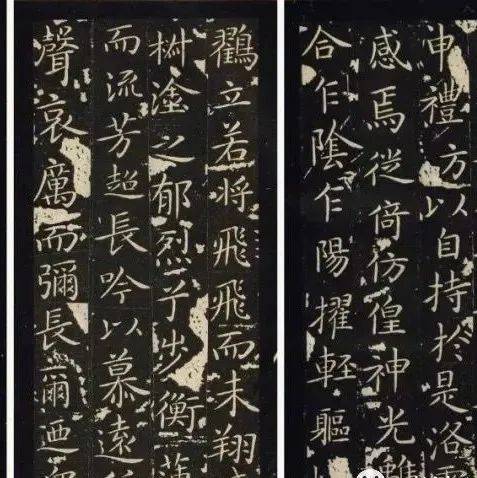 申禮方以自持於是洛靈
感焉徙倚仿偟神光離
合乍陰乍陽擢輕軀
鶴立若將飛飛而未翔
椒塗之郁烈兮步衡薄
而流芳超長吟以慕遠
聲哀厲而彌長爾迺眾